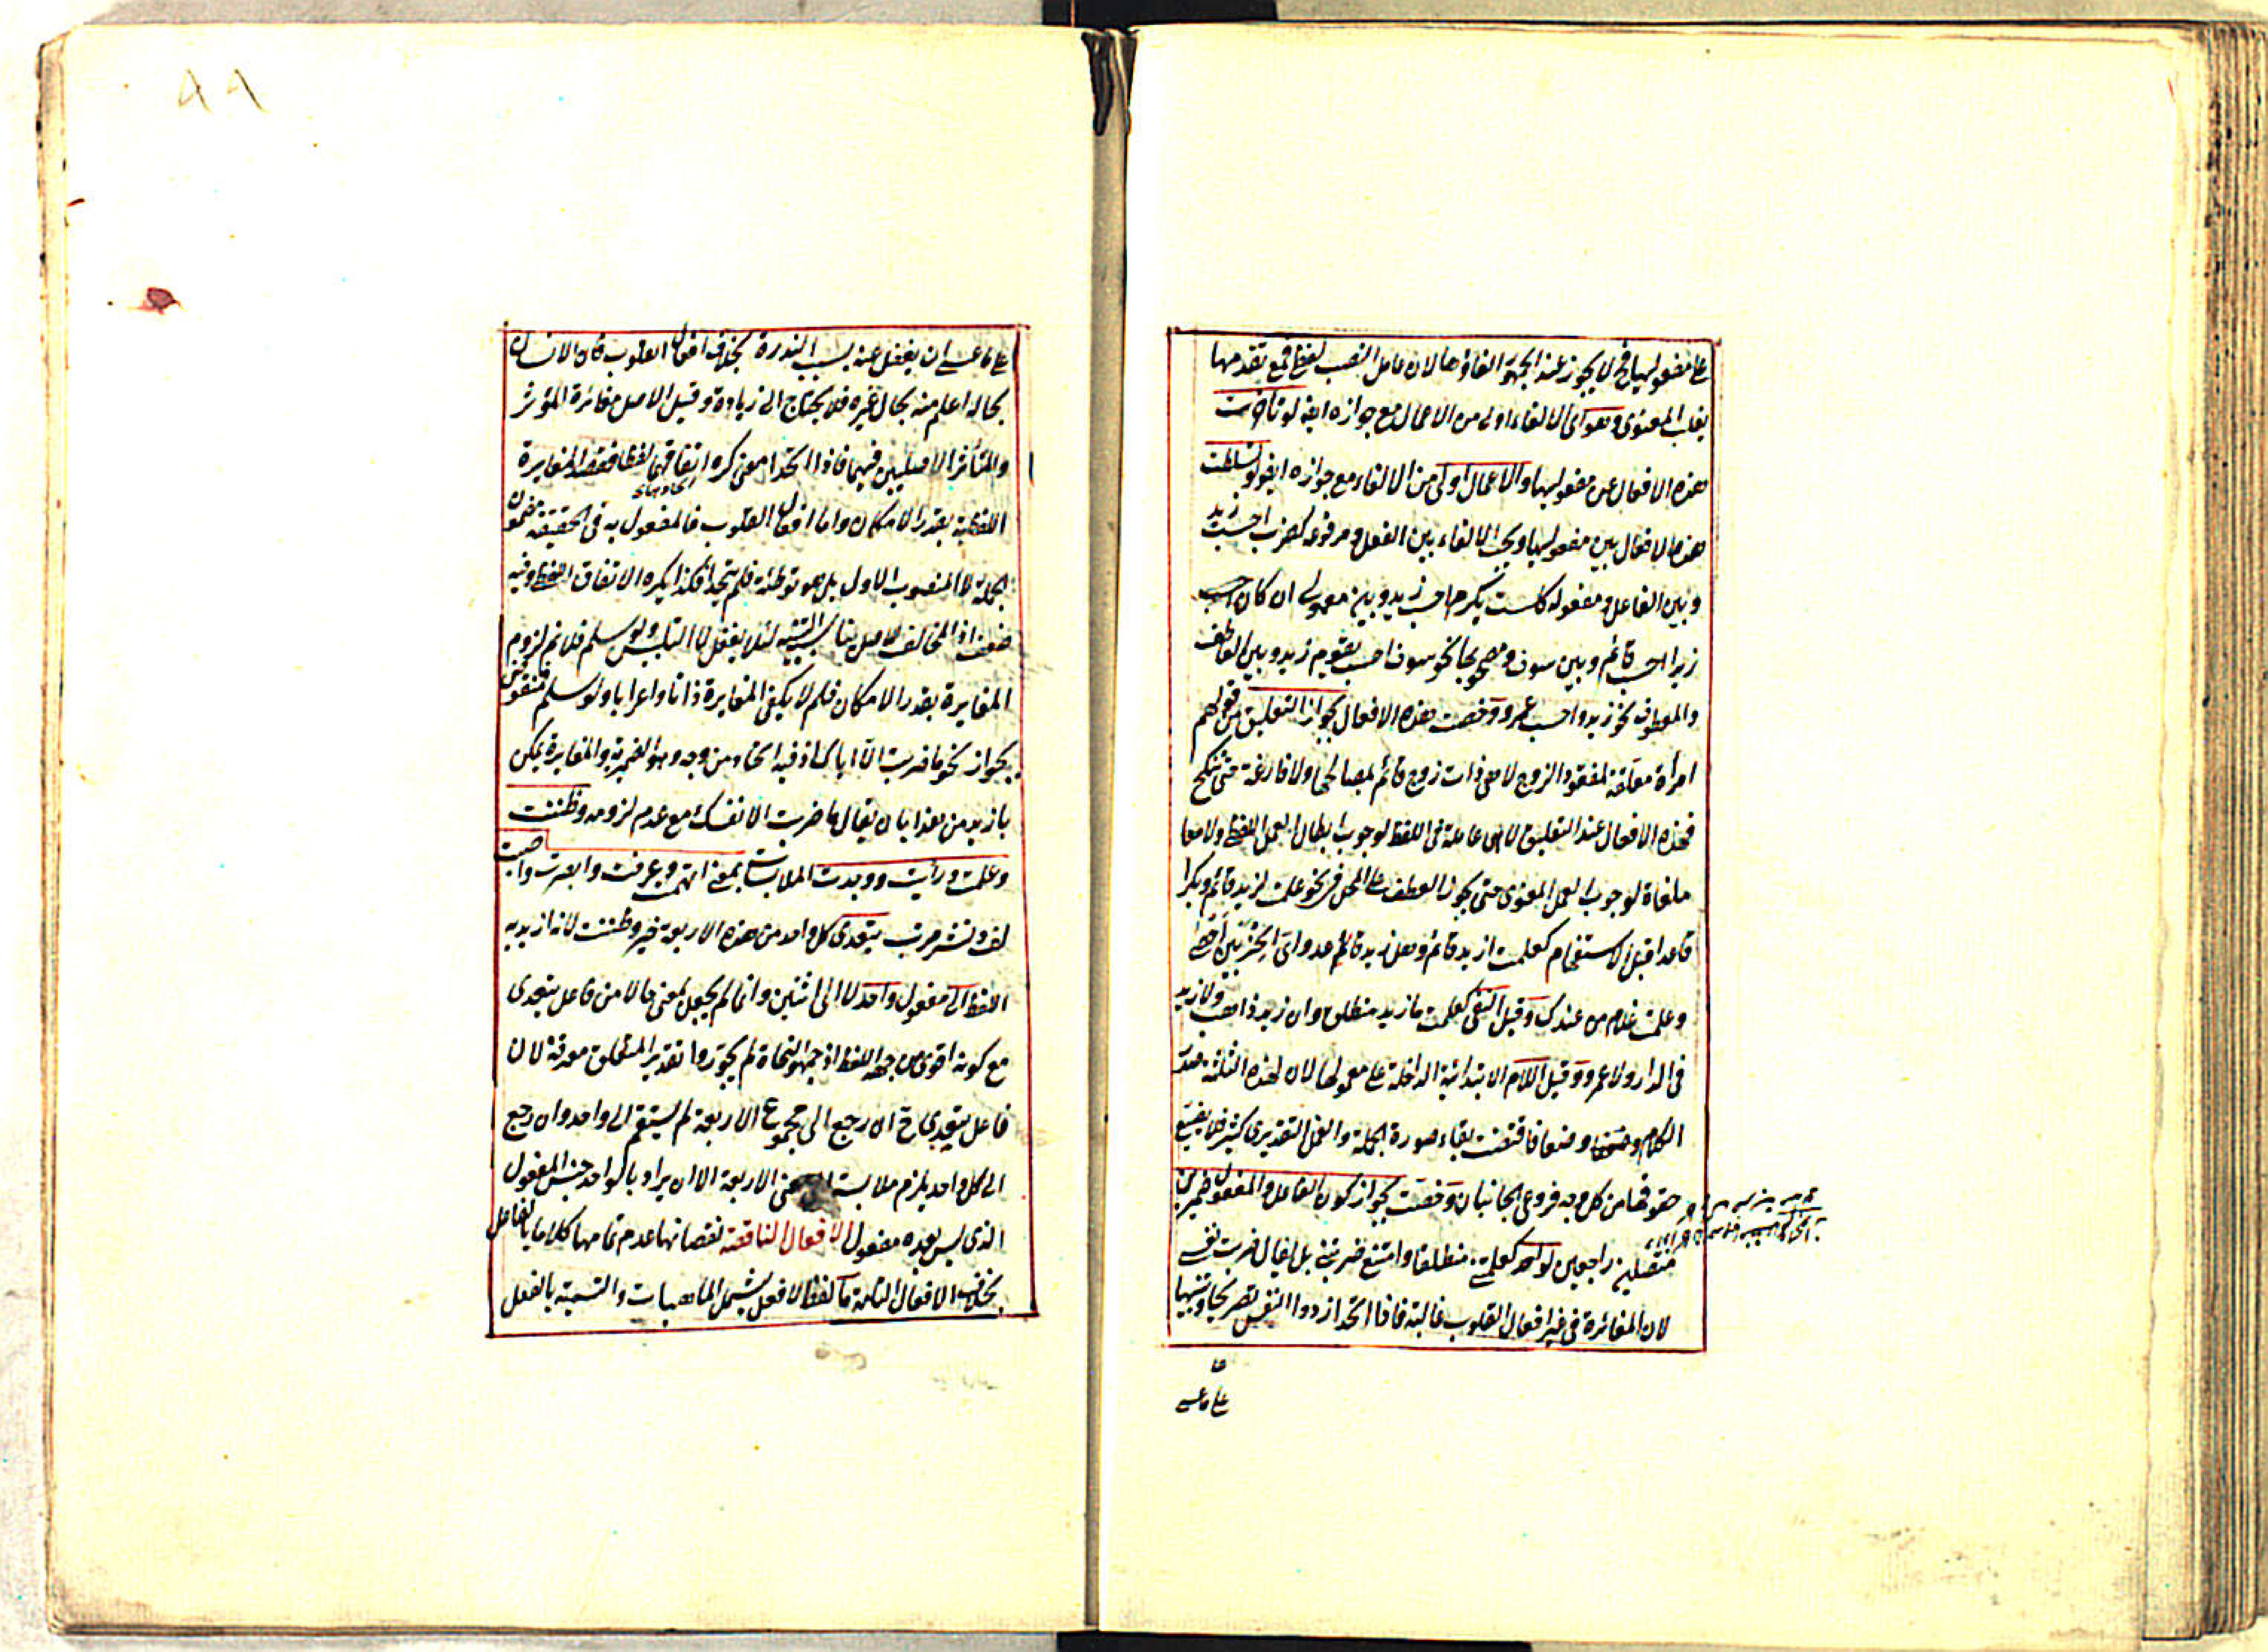 على مفعوليها فح لا يجوز عند الجمهور الغاؤها لان عامل النصب لفظي فمع تقدمها
يغلب المعنوى وهو اى الالغاء اولى من الاعمال مع جوازه ايضا لو تأخرت
هذه الافعال عن مفعوليها والاعمال اولى من الالغاء مع جوازه ايضا لو توسطت
هذه الافعال بين مفعوليها ويجب الالغاء بين الفعل ومرفوعه كضرب احسب زيد
وبين الفاعل ومفعوله كلست بمكرم احسب زيدا وبين معمولى ان كان احسب
زيدا احسب قائم وبين سوف ومصحوبها نحو سوف احسب يقوم زيد وبين العاطف
والمعطوف نحو زيد واحسب عمرو وخصت هذه الافعال بجواز التعليق من قولهم
امرأة معلقة لمفقود الزوج لا هى ذات زوج قائم بمصالحها ولا فارغة حتى تنكح
فهذه الافعال عند التعليق لا هى عاملة فى اللفظ لوجوب ابطال العمل اللفظى ولا معا
ملغاة لوجوب العمل المعنوى حتى يجوز العطف على المحل فى نحو علمت لزيد قائم وبكرا
قاعدا قبل الاستفهام كعلمت ازيد قائم وهل زيد قائم عدواى الحزبين احصى
وعلمت غلام من عندك وقبل النفى كعلمت ما زيد منطلق وان زيد ذاهب ولا زيد
فى الدار ولا عمرو وقبل اللام الابتدائية الداخلة على معمولها لان لهذه الثلثة صدر
الكلام وضعا فاقتضت بقاء صورة الجملة والعمل التقديرى كثير فلا يضيع
حقوقها من كل وجه فروعى الجانبان وخصت بجواز كون الفاعل والمفعول ضميرين
متصلين راجعين لواحد كعلمتنى منطلقا وامتنع ضربتنى بل يقال ضربت نفسى
لان المغائرة فى غير افعال القلوب غالبة فاذا اتحدا زدوا النفس تصريحا وتنبيها
على ما عسى
٨٩
على ما عسى ان يغفل عنه بسبب الندرة بخلاف افعال القلوب فان الانسان
بحاله اعلم منه بحال غيره فلا يحتاج الى زيادة وقيل الاصل مغائرة المؤثر
والمتأثر الاصليين فيهما فاذا اتحدا معنى كره اتفاقهما لفظا فقصد المغايرة
اللفظية بقدر الامكان واما افعال القلوب فالمفعول به فى الحقيقة مضمون
الجملة لا المنصوب الاول بل هو توطئة فلم يتحدا فلذا لم يكره الاتفاق اللفظى وفيه
ضعف اذ المخالف للاصل يناسب التنبيه لئلا يغفل لا التلبيس ولو سلم فلا نم لزوم
المغايرة بقدر الامكان فلم لا يكفى المغايرة ذاتا واعرابا ولو سلم فمنقوض
بجواز نحو ما ضربت الا اياك اذ فيه اتحاد من وجه وهو الضميرية والمغايرة يمكن
بازيد من هذا بان يقال ما ضربت الا نفسك مع عدم لزومه وظننت
وعلمت ورأيت ووجدت الملابسات بمعنى اتهمت وعرفت وابصرت واصبت
لف ونشر مرتب يتعدى كل واحد من هذه الاربعة خبر وظننت لانه ازيد به
اللفظ الى مفعول واحد لا الى اثنين وانما لم يجعل بمعنى حالا من فاعل يتعدى
مع كونه اقوى من جهة اللفظ اذ جمهور النحاة لم يجوزوا تقدير المتعلق معرفة لان
فاعل يتعدى ح ان رجع الى مجموع الاربعة لم يستقم الى واحد وان رجع
الى كل واحد يلزم ملابسة المعنى الاربعة الا ان يراد بالواحد جنس المفعول
الذى ليس بعده مفعول الافعال الناقصة نقصانها عدم تمامها كلاما بالفاعل
بخلاف الافعال التامة ما لفظ الافعل يشمل الماهيات والتسمية بالفعل